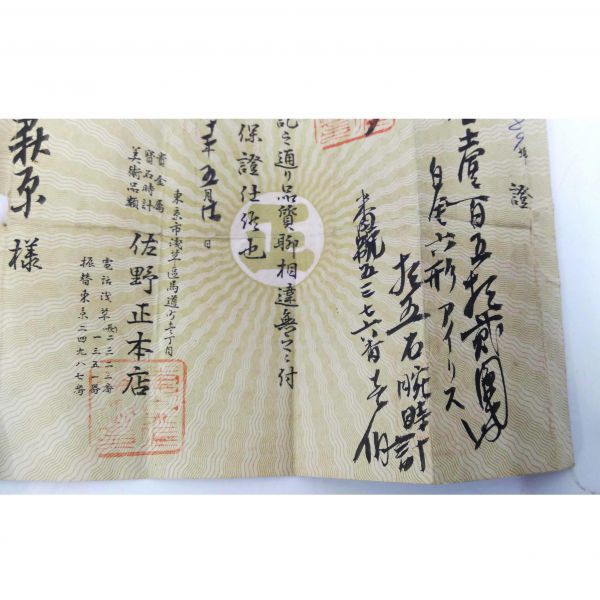 證
壹百五拾貳圓也
白金菱形アイリス
拾五石腕時計
番號五三七六番 壱個
記之通リ品質聊相違無之ニ付
保證仕候也
年五月 日
東京市淺草區馬道町壱丁目
貴金属
寶石時計
美術品類
佐野正本店
電話淺草 二三二三番
一三五一番
振替東京二四九八七番
萩原様